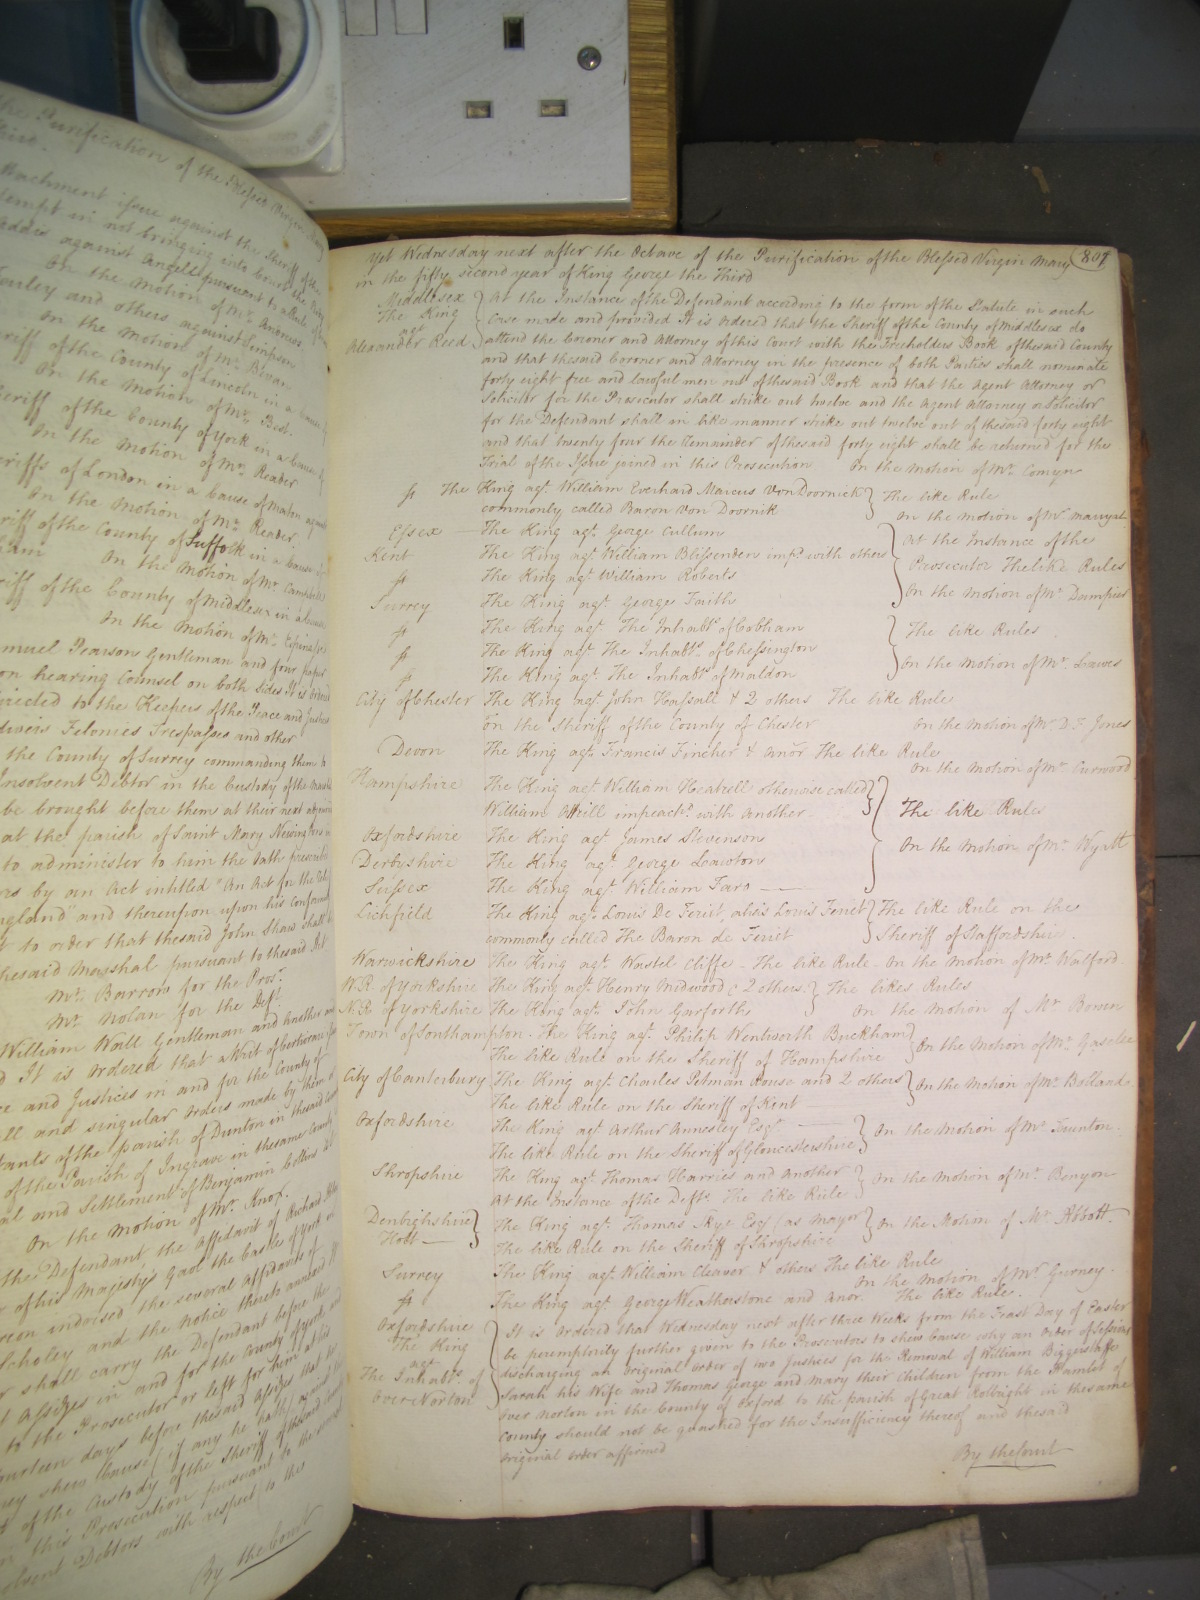 the Purification of the Blessed Virgin Mary
Attachment issue against the Sheriff of the
tempt in not bringing into Court the Body
against Angell pursuant to a Rule of
On the Motion of Mr. Andrews
and others against Simpson
On the Motion of Mr. Bevan
riff of the County of Lincoln in a Cause
On the Motion of Mr. Best.
Sheriff of the County of York in a Cause of
On the Motion of Mr. Reader
eriffs of London in a Cause of Maten against
On the Motion of Mr. Reader.
riff of the County of Suffolk in a Cause
On the Motion of Mr. Campbell
riff of the County of Middlesex in a Cause
On the Motion of Mr.
muel Pearson Gentleman and four papers
on hearing Counsel on both sides It is Ordered
directed to the Keepers of the Peace and Justices
divers Felonies Trespasses and other
the County of Surrey commanding them to
Insolvent Debtor in the Custody of the Marshal
be brought before them at their next adjourned
at the parish of Saint Mary Newington
to administer to him the Oath prescribed
by an Act intitled "An Act for the
ngland" and thereupon upon his conforming
to order that the said John Shaw shall
hesaid Marshal pursuant to thesaid Act
Mr. Barrow for the Prosr.
Mr. Nolan for the Deft.
William Wall Gentleman and Another
It is Ordered that a Writ of Certiorari
and Justices in and for the County of
all and singular Orders made by them
tants of the parish of Dunton in thesaid
of the Parish of Ingrave in thesame County
al and Settlement of Benjamin Collins
On the Motion of Mr. Knox.
the Defendant, the Affidavit of Richard
of his Majesty's Gaol the Castle of York
reon indorsed the several Affidavits of
Scholey and the Notice thereto annexed
shall carry the Defendant before the
Assizes in and for the County of York
to the Prosecutor or left for him at his
fourteen days before thesaid Assizes that
shew Cause (if any he hath) against
of the Custody of the Sheriff of thesaid County
in this Prosecution pursuant to the
solvent Debtors with respect to the
By the Court
Yet Wednesday next after the Octave of the Purification of the Blessed Virgin Mary 807
in the fifty second year of King George the Third
Middlesex At the Instance of the Defendant according to the form of the Statute in such
The King Case made and provided It is Ordered that the Sheriff of the County of Middlesex do
agt attend the Coroner and Attorney of this Court with the Freeholders Book of thesaid County
Alexander Reed and that thesaid Coroner and Attorney in the presence of both Parties shall nominate
forty eight free and lawful men out of thesaid Book and that the Agent Attorney or
Solicitor for the Prosecutor shall strike out twelve and the Agent Attorney or Solicitor
for the Defendant shall in like manner strike out twelve out of thesaid forty eight
and that twenty four the Remainder of thesaid forty eight shall be returned for the
Trial of the Issue joined in this Prosecution On the Motion of Mr. Comyn
The King agt. William Everhard Marcus Von Doornick The like Rule
commonly called Baron Von Doornik On the Motion of Mr. Marryat
Essex The King agt. George Cullum At the Instance of the
Kent The King agt. William Blissenden impd. with others Prosecutor The like Rules
The King agt. William Roberts On the Motion of Mr. Dampier
Surrey The King agt. George Faith
The King agt. The Inhabts. of Cobham The like Rules
The King agt. The Inhabts. of Chessington
The King agt. The Inhabts. of Maldon On the Motion of Mr. Lawes
City of Chester The King agt. John Hassall & 2 others The like Rule
on the Sheriff of the County of Chester On the Motion of Mr. D. F. Jones
Devon The King agt. Francis Fincher & Anor. The like Rule
On the Motion of Mr. Curwood
Hampshire The King agt. William Heatrell otherwise called
William Attrill impeachd. with Another The like Rules
Oxfordshire The King agt. James Stevenson On the Motion of Mr. Wyatt
Derbyshire The King agt. George Lawton
Sussex The King agt. William Faro
Lichfield The King agt. Louis De Feriet, alias Louis Feriet The like Rule on the
commonly called The Baron de Feriet Sheriff of Staffordshire.
Warwickshire The King agt. Wastel Cliffe - The like Rule - On the Motion of Mr. Walford.
W.R. of Yorkshire The King agt. Henry Midwood & 2 others. The likes Rules
N.R. of Yorkshire The King agt. John Garforth On the Motion of Mr. Bowen
Town of Southampton - The King agt. Philip Wentworth Buckham On the Motion of Mr. Gaselee
The like Rule on the Sheriff of Hampshire
City of Canterbury The King agt. Charles Pitman Rouse and 2 others On the Motion of Mr. Bolland
The like Rule on the Sheriff of Kent
Oxfordshire The King agt. Arthur Annesley Esqr. On the Motion of Mr. Taunton.
The like Rule on the Sheriff of Gloucestershire
Shropshire The King agt. Thomas Harries and Another On the Motion of Mr. Benyon
At the Instance of the Defts. The like Rule
Denbighshire The King agt. Thomas Skye Esq (as Mayor On the Motion of Mr. Abbott.
Holt The like Rule on the Sheriff of Shropshire
Surrey The King agt. William Cleaver & others The like Rule
On the Motion of Mr. Gurney.
The King agt. George Weatherstone and Anor. The like Rule.
Oxfordshire It is Ordered that Wednesday next after three Weeks from the Feast Day of Easter
The King be peremptorily further given to the Prosecutors to shew Cause why an Order of Sessions
agt. discharging an Original Order of two Justices for the Removal of William Biggerstaffe
The Inhabts. of Sarah his Wife and Thomas George and Mary their Children from the Hamlet of
Over Norton Over Norton in the County of Oxford to the parish of Great Rollright in thesame
County should not be quashed for the Insufficiency thereof and thesaid
Original Order affirmed
By the Court